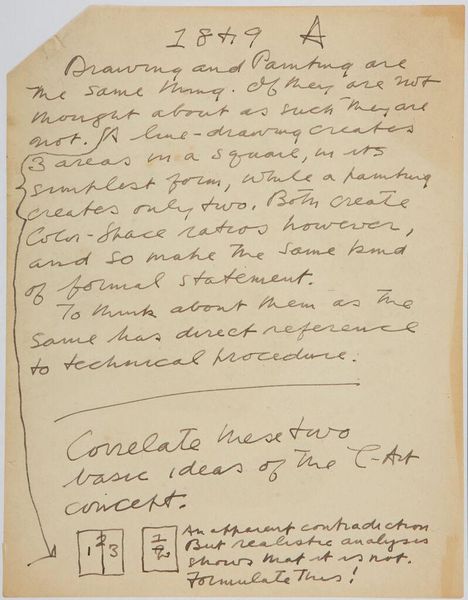 18+19 A
Drawing and Painting are
the same thing. If they are not
thought about as such they are
not. A line-drawing creates
3 areas in a square, in its
simplest form, while a painting
creates only two. Both create
Color-Space ratios however,
and so make the same kind
of formal statement.
To think about them as the
same has direct reference
to technical procedure.
Correlate these two
basic ideas of the C-Art
concept.
1 2 3
1 2
An apparent contradiction
But realistic analysis
shows that it is not.
Formulate This!